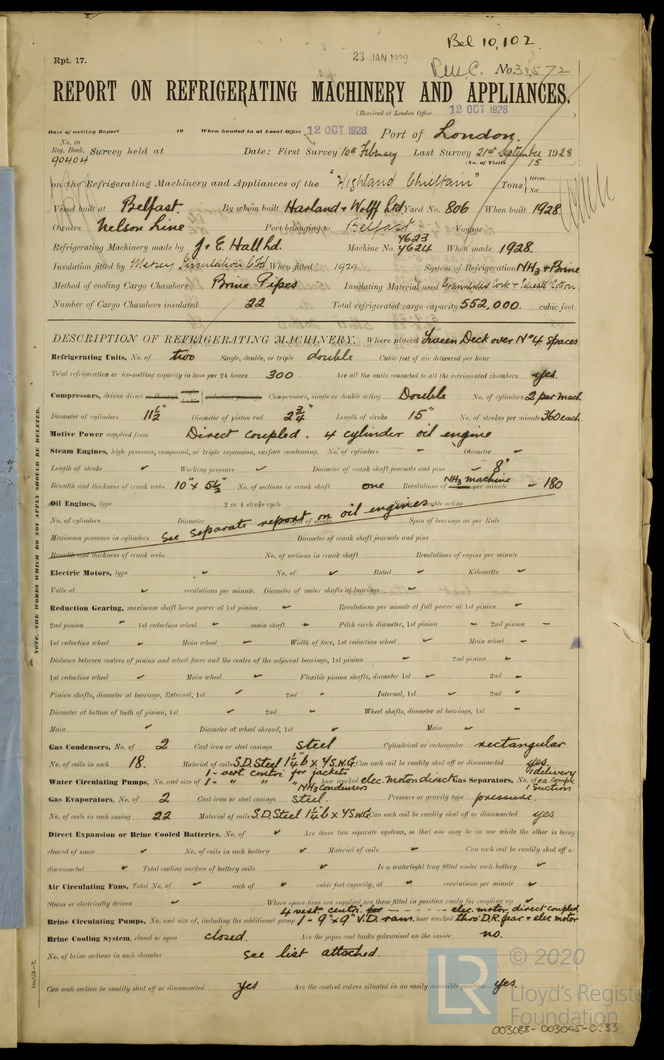 Bel 10,102.
Rpt. 17.
23 JAN 1929
No. 31572
REPORT ON REFRIGERATING MACHINERY AND APPLIANCES.
(Received at London Office 12 OCT 1928
Date of writing Report 19 When handed in at Local Office 12 OCT 1928 Port of London.
No. in Reg. Book. Survey held at Date: First Survey 10th February Last Survey 21st September 1928
90404 (No. of Visits 15
on the Refrigerating Machinery and Appliances of the "Highland Chieftain" Tons Gross Net
Vessel built at Belfast. By whom built Harland & Wolff Ltd Yard No. 806 When built 1928.
Owners Nelson Line Port belonging to Belfast Voyage
Refrigerating Machinery made by J & E. Hall Ltd. Machine No. 4623 4624 When made 1928.
Insulation fitted by Mersey Insulation Co Ltd When fitted 1929. System of Refrigeration NH3 & Brine
Method of cooling Cargo Chambers Brine Pipes Insulating Material used Granulated Cork &
Number of Cargo Chambers insulated 22 Total refrigerated cargo capacity 552,000. cubic feet.
DESCRIPTION OF REFRIGERATING MACHINERY. Where placed Tween Deck over No 4 spaces
Refrigerating Units, No. of two Single, double, or triple double Cubic feet of air delivered per hour
Total refrigeration or ice-melting capacity in tons per 24 hours 300 Are all the units connected to all the refrigerated chambers yes.
Compressors, driven direct or through reduction gearing. Compressors, single or double acting Double No. of cylinders 2 per mach.
Diameter of cylinders 11½" Diameter of piston rod 2¾" Length of stroke 15" No. of strokes per minute 360 each.
Motive Power supplied from Direct coupled. 4 cylinder oil engine
Steam Engines, high pressure, compound, or triple expansion, surface condensing, No. of cylinders Diameter
Length of stroke Working pressure Diameter of crank shaft journals and pins 8"
Breadth and thickness of crank webs 10" x 5½" No. of sections in crank shaft one Revolutions of NH3 machine per minute 180
Oil Engines, type 2 or 4 stroke cycle Single or double acting
No. of cylinders Diameter Length of stroke Span of bearings as per Rule
See separate report on oil engines
Maximum pressure in cylinders Diameter of crank shaft journals and pins
Breadth and thickness of crank webs No. of sections in crank shaft Revolutions of engine per minute
Electric Motors, type No. of Rated Kilowatts
Volts at revolutions per minute. Diameter of motor shafts at bearings
Reduction Gearing, maximum shaft horse power at 1st pinion Revolutions per minute at full power at 1st pinion
2nd pinion 1st reduction wheel main shaft Pitch circle diameter, 1st pinion 2nd pinion
1st reduction wheel Main wheel Width of face, 1st reduction wheel Main wheel
Distance between centres of pinion and wheel faces and the centre of the adjacent bearings, 1st pinion 2nd pinion
1st reduction wheel Main wheel Flexible pinion shafts, diameter 1st 2nd
Pinion shafts, diameter at bearings, External, 1st 2nd Internal, 1st 2nd
Diameter at bottom of teeth of pinion, 1st 2nd Wheel shafts, diameter at bearings, 1st
Main Diameter at wheel shroud, 1st Main
Gas Condensers, No. of 2 Cast iron or steel casings steel Cylindrical or rectangular rectangular
No. of coils in each 18. Material of coils S.D. Steel 1¼" b x 7 S.W.G. Can each coil be readily shut off or disconnected yes.
Water Circulating Pumps, No. and size of 1 - vert centri. for jackets 1 - " " " NH3 Condensers how worked elec. motor direct Gas Separators, No. of 1 delivery ea. compr. 1 suction
Gas Evaporators, No. of 2 Cast iron or steel casings Steel Pressure or gravity type pressure.
No. of coils in each casing 22 Material of coils S.D. Steel 1¼" b x 7 S.W.G. Can each coil be readily shut off or disconnected yes
Direct Expansion or Brine Cooled Batteries, No. of Are there two separate systems, so that one may be in use while the other is being
cleared of snow No. of coils in each battery Material of coils Can each coil be readily shut off or
disconnected Total cooling surface of battery coils Is a watertight tray fitted under each battery
Air Circulating Fans, Total No. of each of cubic feet capacity, at revolutions per minute
Steam or electrically driven Where spare fans are supplied are these fitted in position ready for coupling up
4 vert. centri. elec. motor, direct coupled
Brine Circulating Pumps, No. and size of, including the additional pump 1 - 9" x 9" V.D. ram. how worked thro' D.R. gear & elec motor
Brine Cooling System, closed or open closed. Are the pipes and tanks galvanised on the inside no.
No. of brine sections in each chamber See list attached.
Can each section be readily shut off or disconnected yes Are the control valves situated in an easily accessible position yes.
NOTE. THE WORDS WHICH DO NOT APPLY SHOULD BE DELETED.
LR © 2020
Lloyd's Register
Foundation
003088-003095-0233